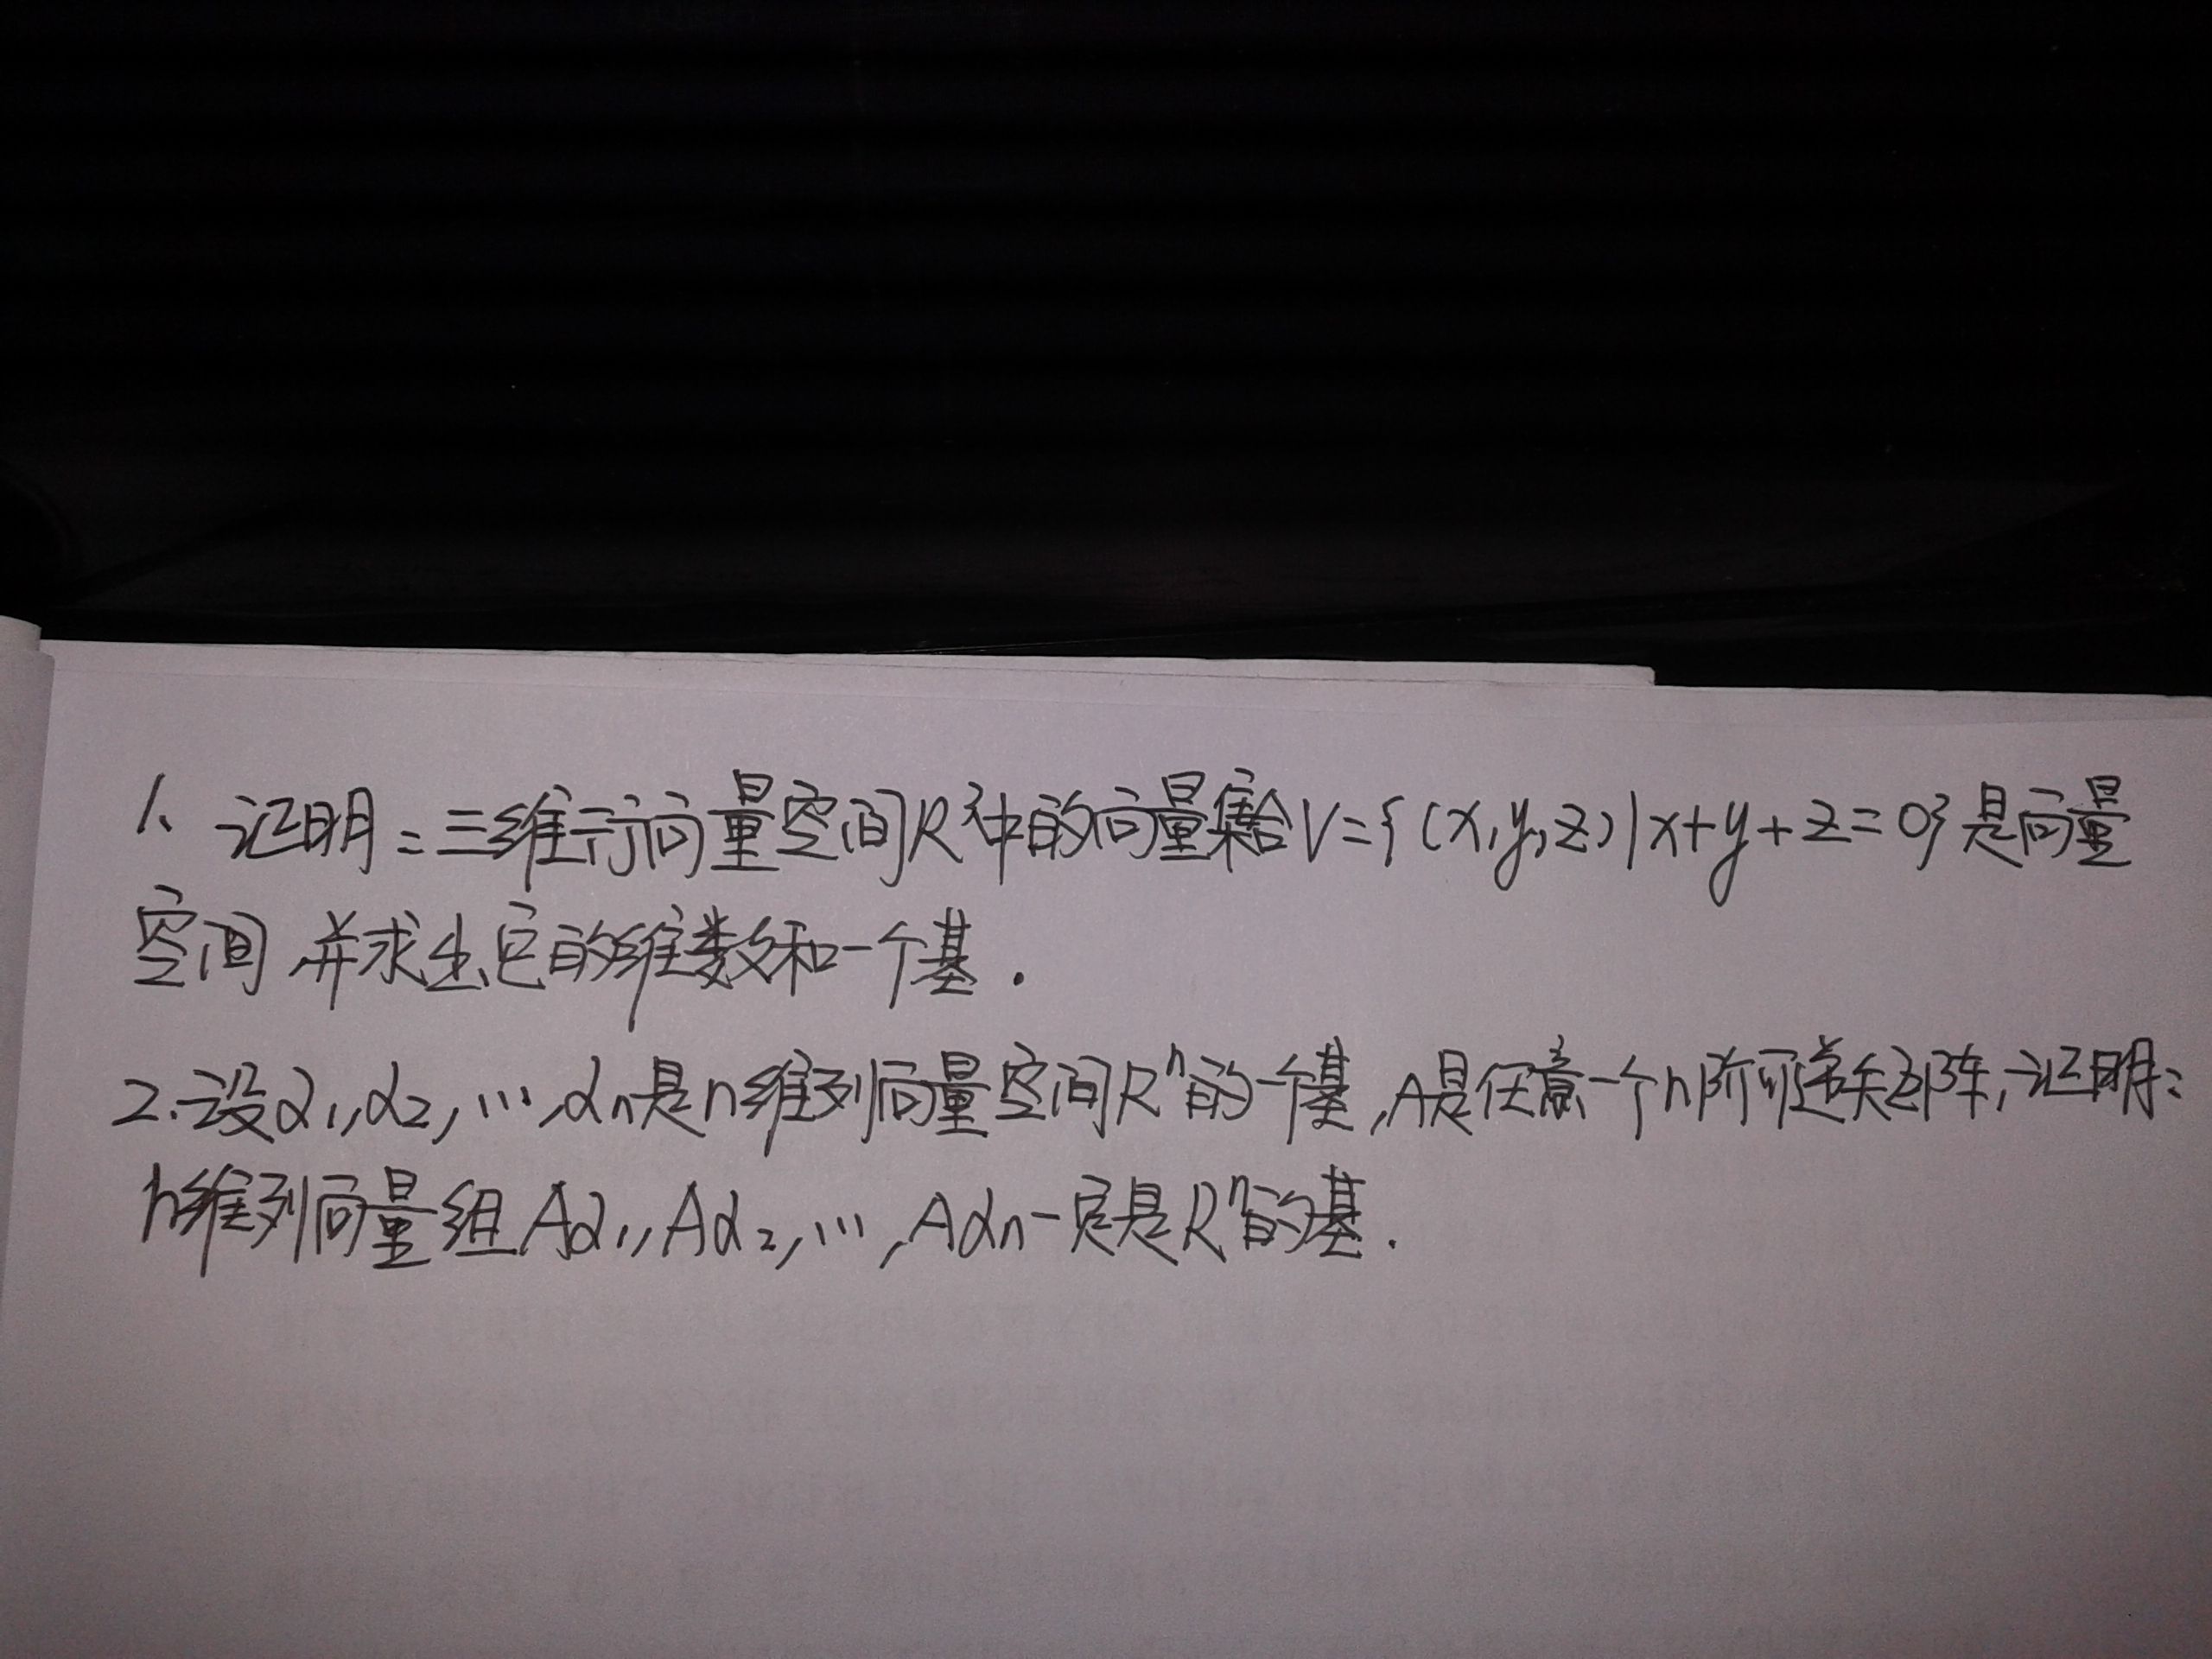 1. 证明:三维行向量空间R³中的向量集合V={(x,y,z)|x+y+z=0}是向量
空间,并求出它的维数和一个基.
2.设α₁,α₂,…,αn是n维列向量空间Rⁿ的一个基,A是任意一个n阶可逆矩阵,证明:
n维列向量组Aα₁,Aα₂,…,Aαn一定是Rⁿ的基.